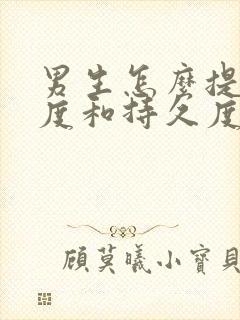 男生怎麼提
度和持久度
顧莫曦小寶貝